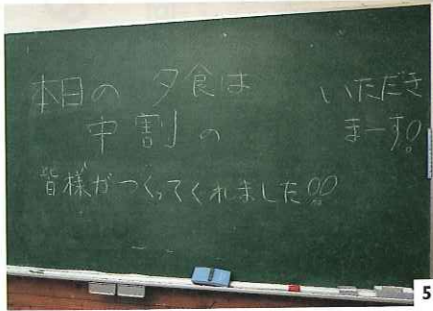 本日の 夕食は
中割の
皆様がつくってくれました!!
いただき
まーす!
5